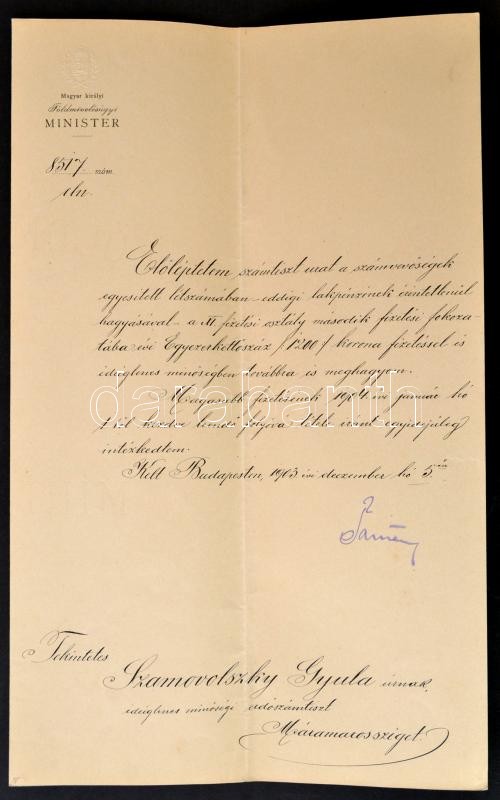 Magyar királyi
Földművelésügyi
MINISTER
8517. szám
eln.
Előléptetem számtiszt urat a számvevőségek
egyesített létszámában eddigi lakpénzének érintetlenül
hagyásával a XI fizetési osztály második fizetési fokoza-
tába évi Egyezerkettőszáz /1200/ korona fizetéssel és
ideiglenes minőségben továbbra is meghagyom.
Magasabb fizetésének 1904 évi január hó
1től kezdve leendő folyóvá tétele iránt egyidejűleg
intézkedtem.
Kelt Budapesten, 1903 évi deczember hó 5-én
darabanth
Tekintetes
Szamovolszky Gyula úrnak,
ideiglenes minőségű erdőszámtiszt
Máramarossziget.